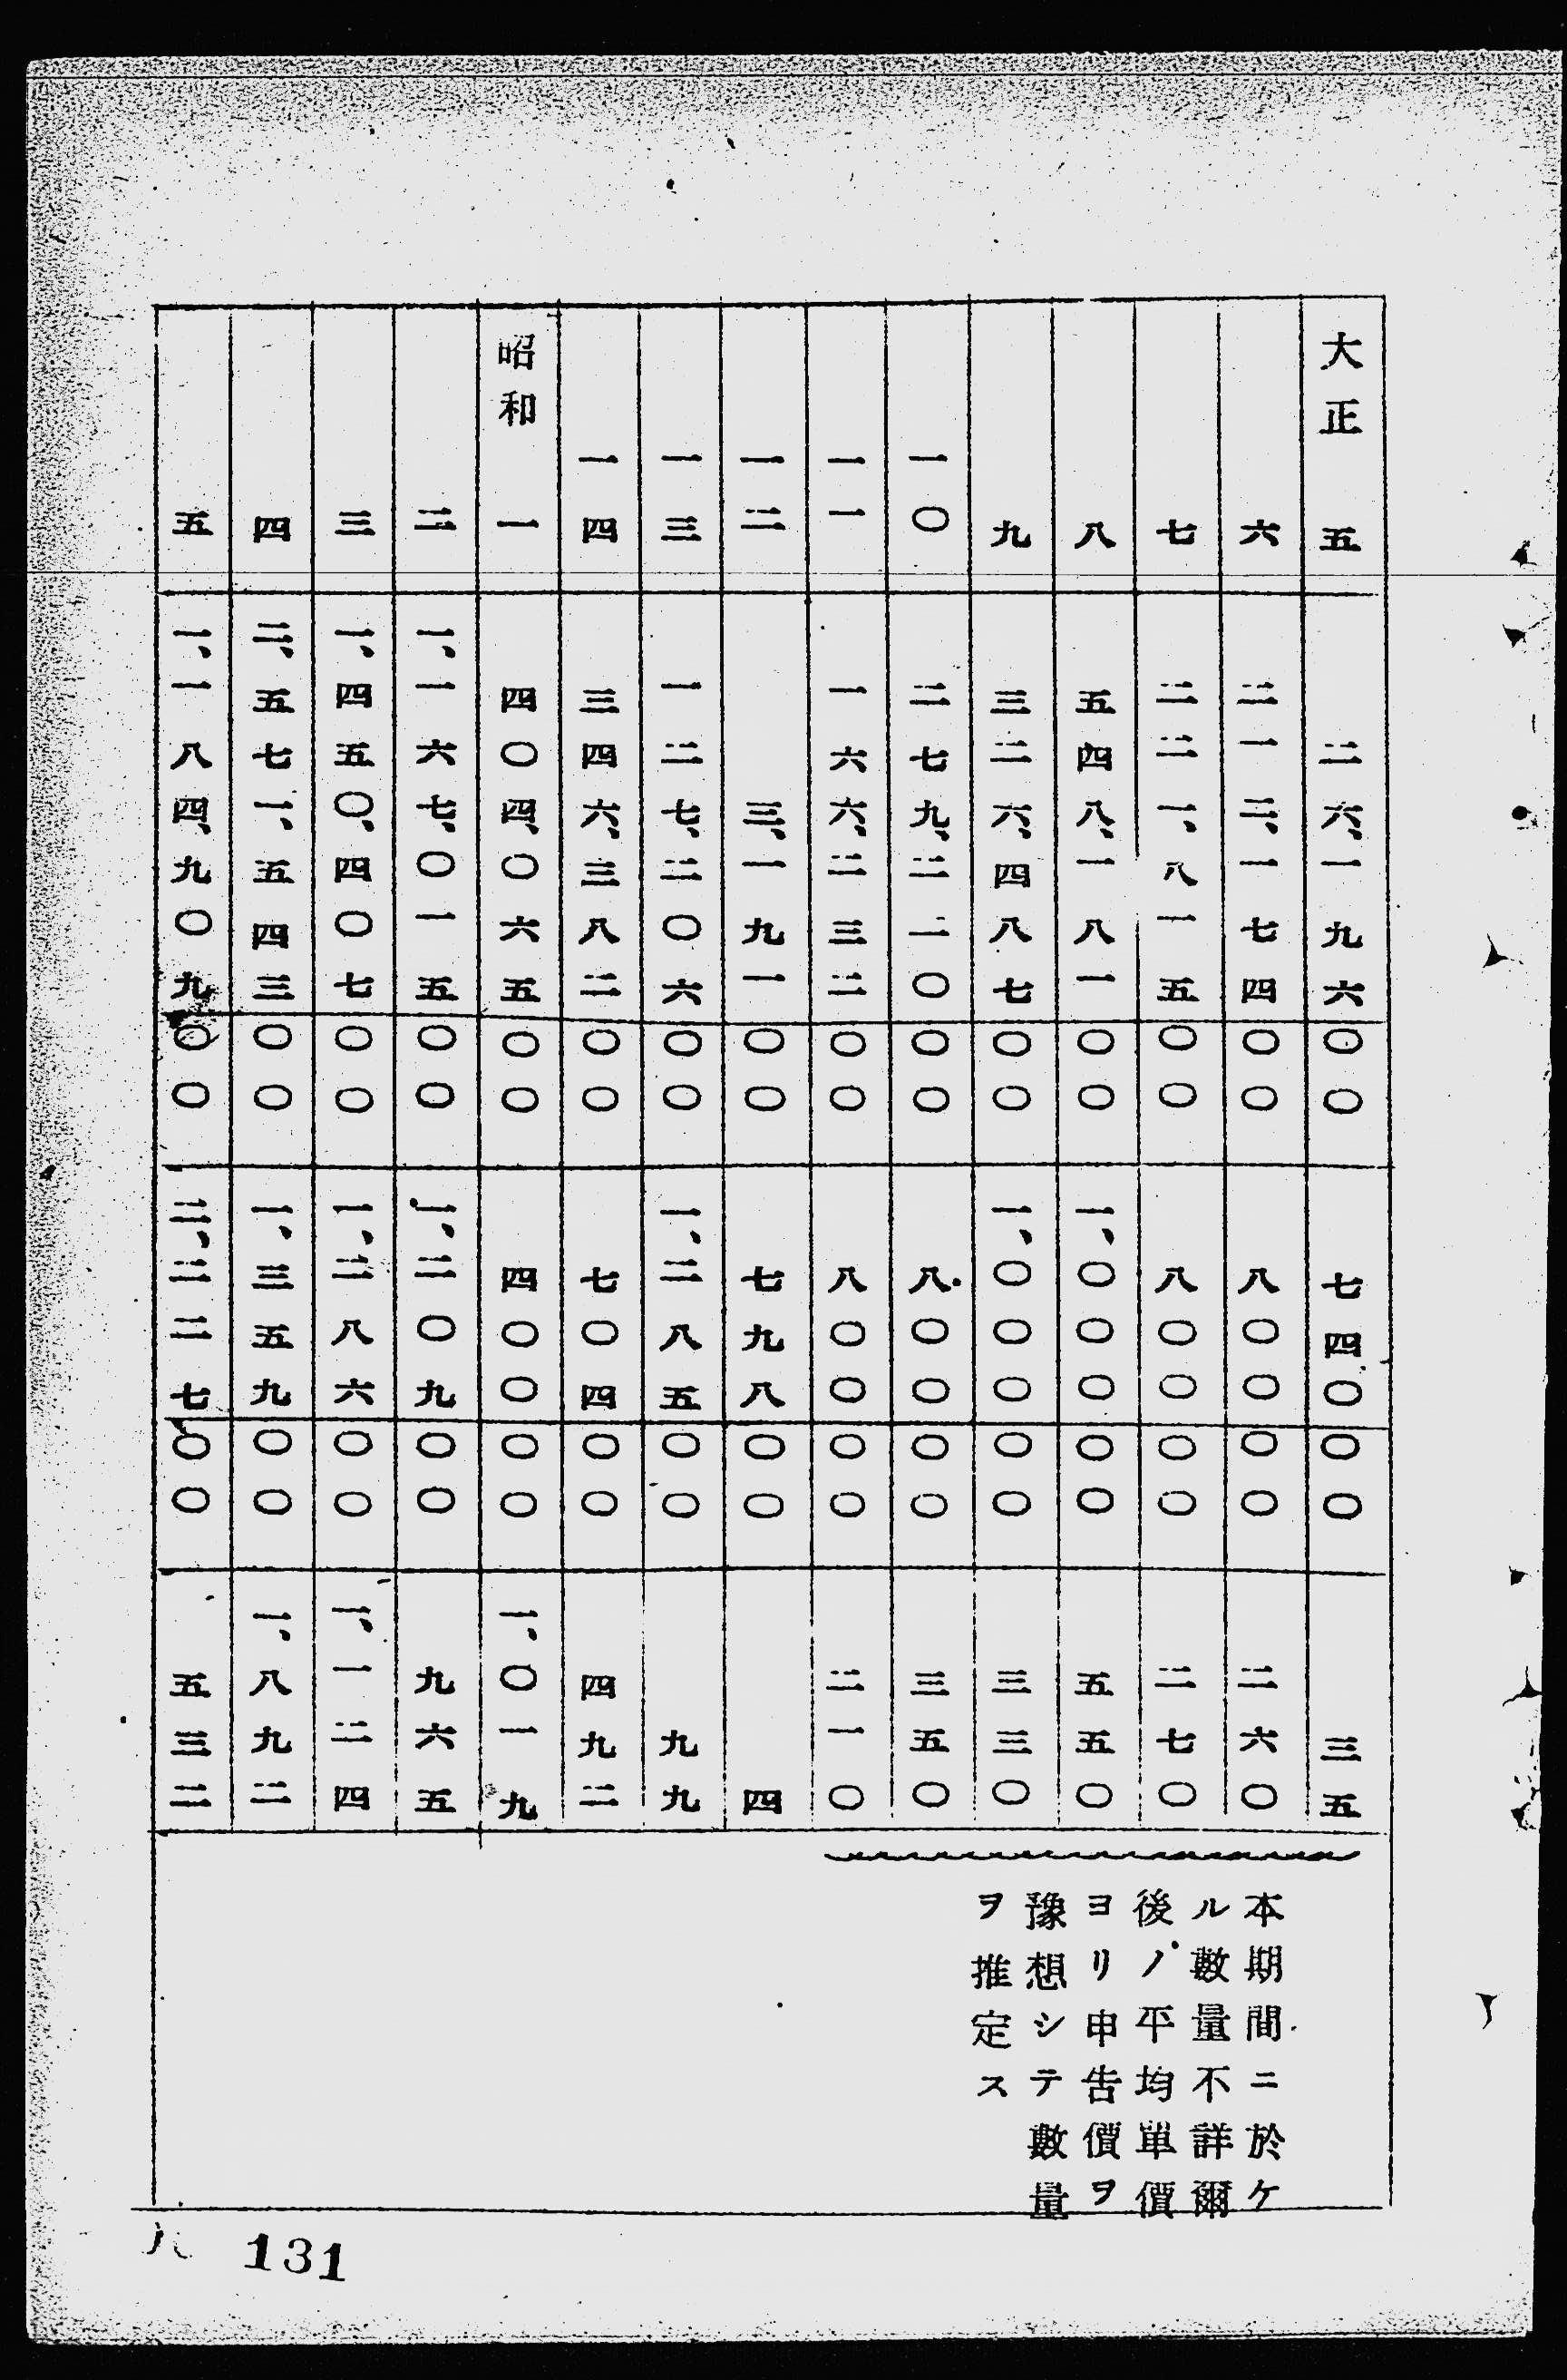 大正 五 二六、一九六〇〇 七四〇〇〇 三五
六 二一二、一七四〇〇 八〇〇〇〇 二六〇
七 二二一、八一五〇〇 八〇〇〇〇 二七〇
八 五四八、一八一〇〇 一、〇〇〇〇〇 五五〇
九 三二六、四八七〇〇 一、〇〇〇〇〇 三三〇
一〇 二七九、二二〇〇〇 八〇〇〇〇 三五〇
一一 一六六、二三二〇〇 八〇〇〇〇 二一〇
一二 三、一九一〇〇 七九八〇〇 四
一三 一二七、二〇六〇〇 一、二八五〇〇 九九
一四 三四六、三八二〇〇 七〇四〇〇 四九二
昭和 一 四〇四、〇六五〇〇 四〇〇〇〇 一、〇一九
二 一、一六七、〇一五〇〇 一、二〇九〇〇 九六五
三 一、四五〇、四〇七〇〇 一、二八六〇〇 一、一二四
四 二、五七一、五四三〇〇 一、三五九〇〇 一、八九二
五 一、一八四、九〇九〇〇 二、二二七〇〇 五三二
本期間ニ於ケ
ル數量不詳爾
後ノ平均單價
ヨリ申告價ヲ
豫想シテ數量
ヲ推定ス
131